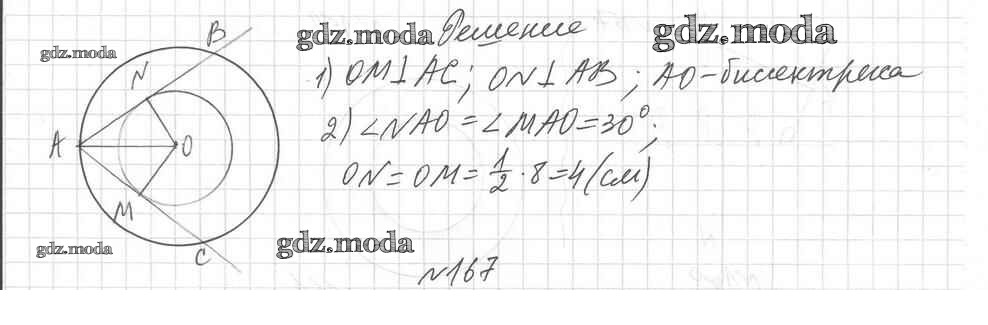 gdz.moda
gdz.moda Решение gdz.moda
B
N
A
O
M
C
1) OM⊥AC; ON⊥AB; AO-биссектриса
2) ∠NAO=∠MAO=30°;
ON=OM=1/2·8=4(см)
gdz.moda
gdz.moda
№167